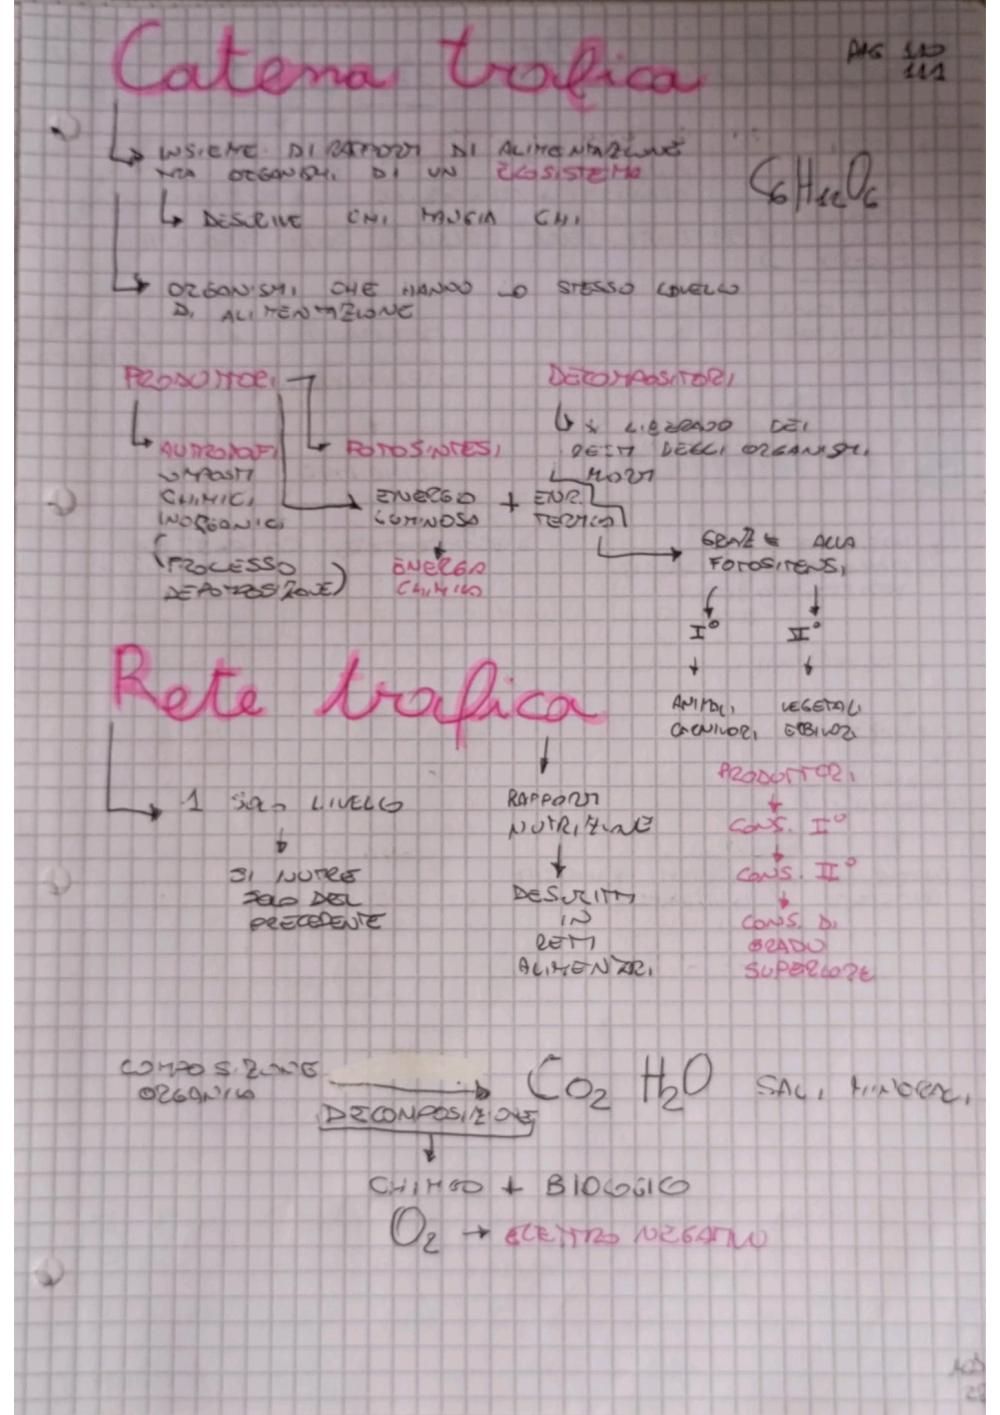 Catena trofica
PAG 110
111
INSIEME DI RAPPORTI DI ALIMENTAZIONE
TRA ORGANISMI DI UN ECOSISTEMA
C6H12O6
DESCRIVE CHI MANGIA CHI
ORGANISMI CHE HANNO LO STESSO LIVELLO
DI ALIMENTAZIONE
PRODUTTORI
DECOMPOSITORI
AUTROTOFI
COMPOSTI
CHIMICI
INORGANICI
(PROCESSO
FOTOSINTESI
ENERGIA
LUMINOSA
+
ENR.
TERMICA
ENERGIA
CHIMICA
X LIBERANO DEI
RESTI DEGLI ORGANISMI
MORTI
GRAZIE ALLA
FOTOSITENSI
I° II°
ANIMALI VEGETALI
CARNIVORI ERBIVORI
Rete trofica
1 SOLO LIVELLO
SI NUTRE
SOLO DEL
PRECEDENTE
RAPPORTI
NUTRIZIONE
DESCRITTI
IN
RETI
ALIMENTARI
PRODUTTORI
CONS. I°
CONS. II°
CONS. DI
GRADO
SUPERIORE
COMPOSIZIONE
ORGANICA
DECOMPOSIZIONE
CO2 H2O SALI MINERALI
CHIMICO + BIOLOGICO
O2 → ELETTRO NEGATIVO